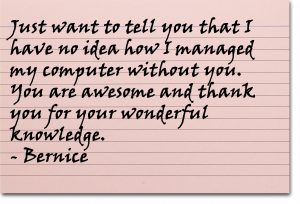 Just want to tell you that I
have no idea how I managed
my computer without you.
You are awesome and thank
you for your wonderful
knowledge.
- Bernice